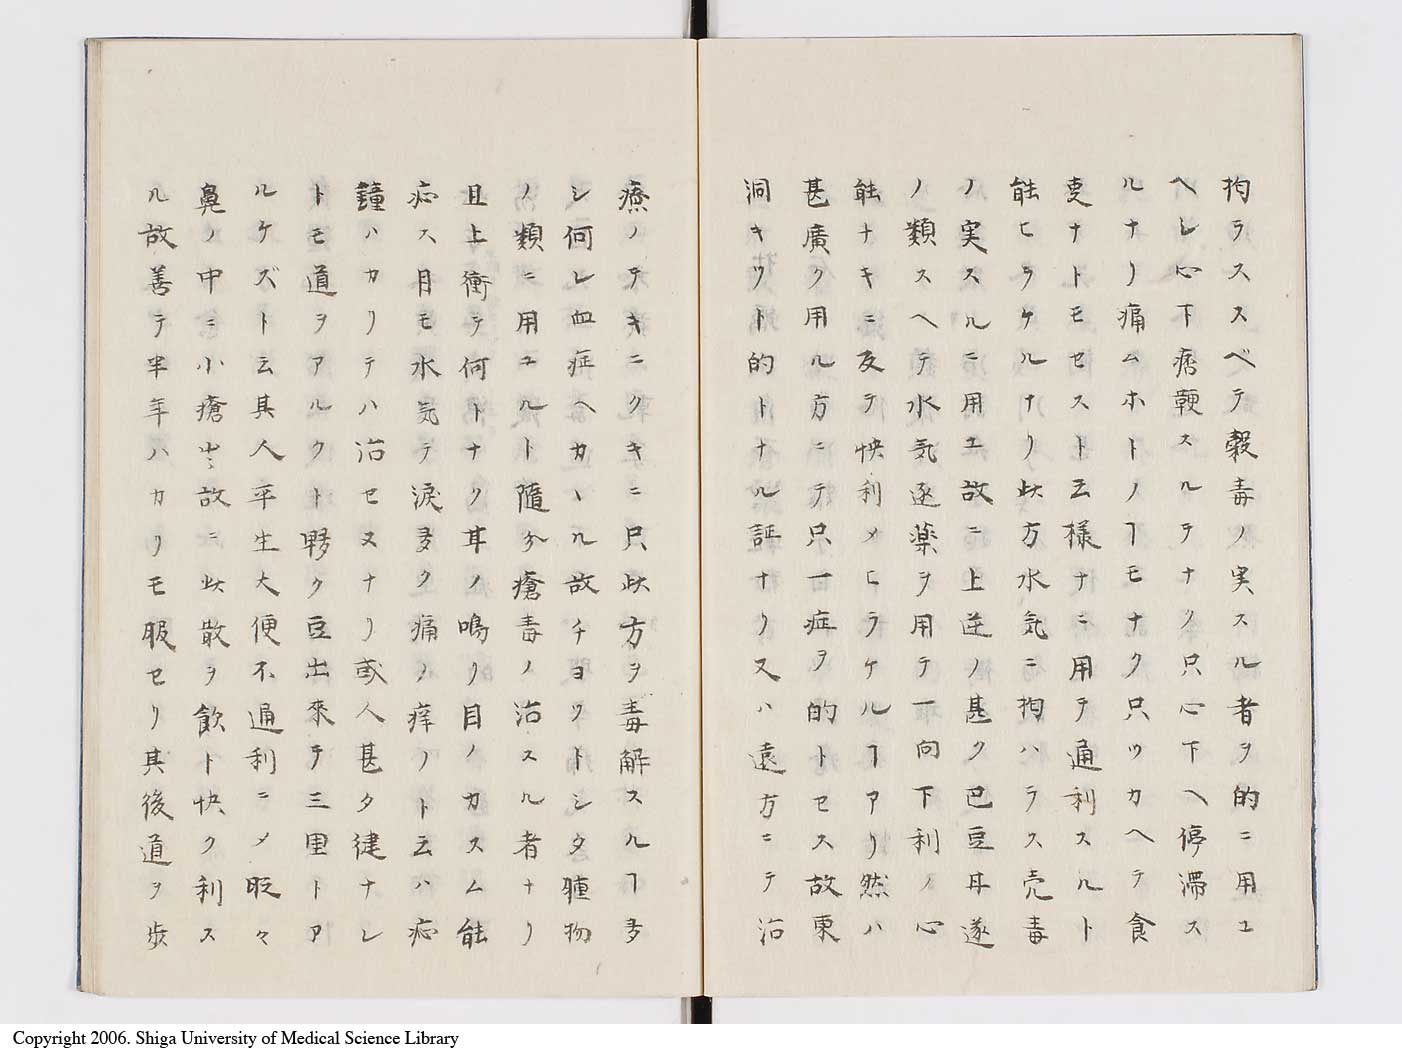 拘ラススベテ穀毒ノ実スル者ヲ的ニ用ユ
ヘレ心下痞鞕スルテナク只心下ヘ停滞ス
ルナリ痛ムホトノヿモナク只ツカヘテ食
吏ナトモセスト云様ナニ用テ通利スルト
能ヒラケルナリ此方水気ニ拘ハラス売毒
ノ実スルニ用ユ故ニ上逆ノ甚ク巴豆甘遂
ノ類スヘテ水気逐薬ヲ用テ一向下利ノ心
能ナキニ反テ快利メヒラケルヿアリ然ハ
甚廣ク用ル方ニテ只一症ヲ的トセス故東
洞キツト的トナル証ナリ又ハ遠方ニテ治
療ノテキニクキニ只此方ヲ毒解スルヿ多
シ何レ血症ヘカヽル故チヨツトシタ腫物
ノ類ニ用ユルト隨分瘡毒ノ治スル者ナリ
且上衝テ何トナク耳ノ鳴リ目ノカスム能
応ス目モ水気テ涙多ク痛ノ痒ノト云ハ応
鐘ハカリテハ治セヌナリ或人甚タ健ナレ
トモ道ヲアルクト夥ク豆出來テ三里トア
ルケズト云其人平生大便不通利ニメ眨々
鼻ノ中ニ小瘡出故ニ此散ヲ飲ト快ク利ス
ル故善テ半年ハカリモ服セリ其後道ヲ歩